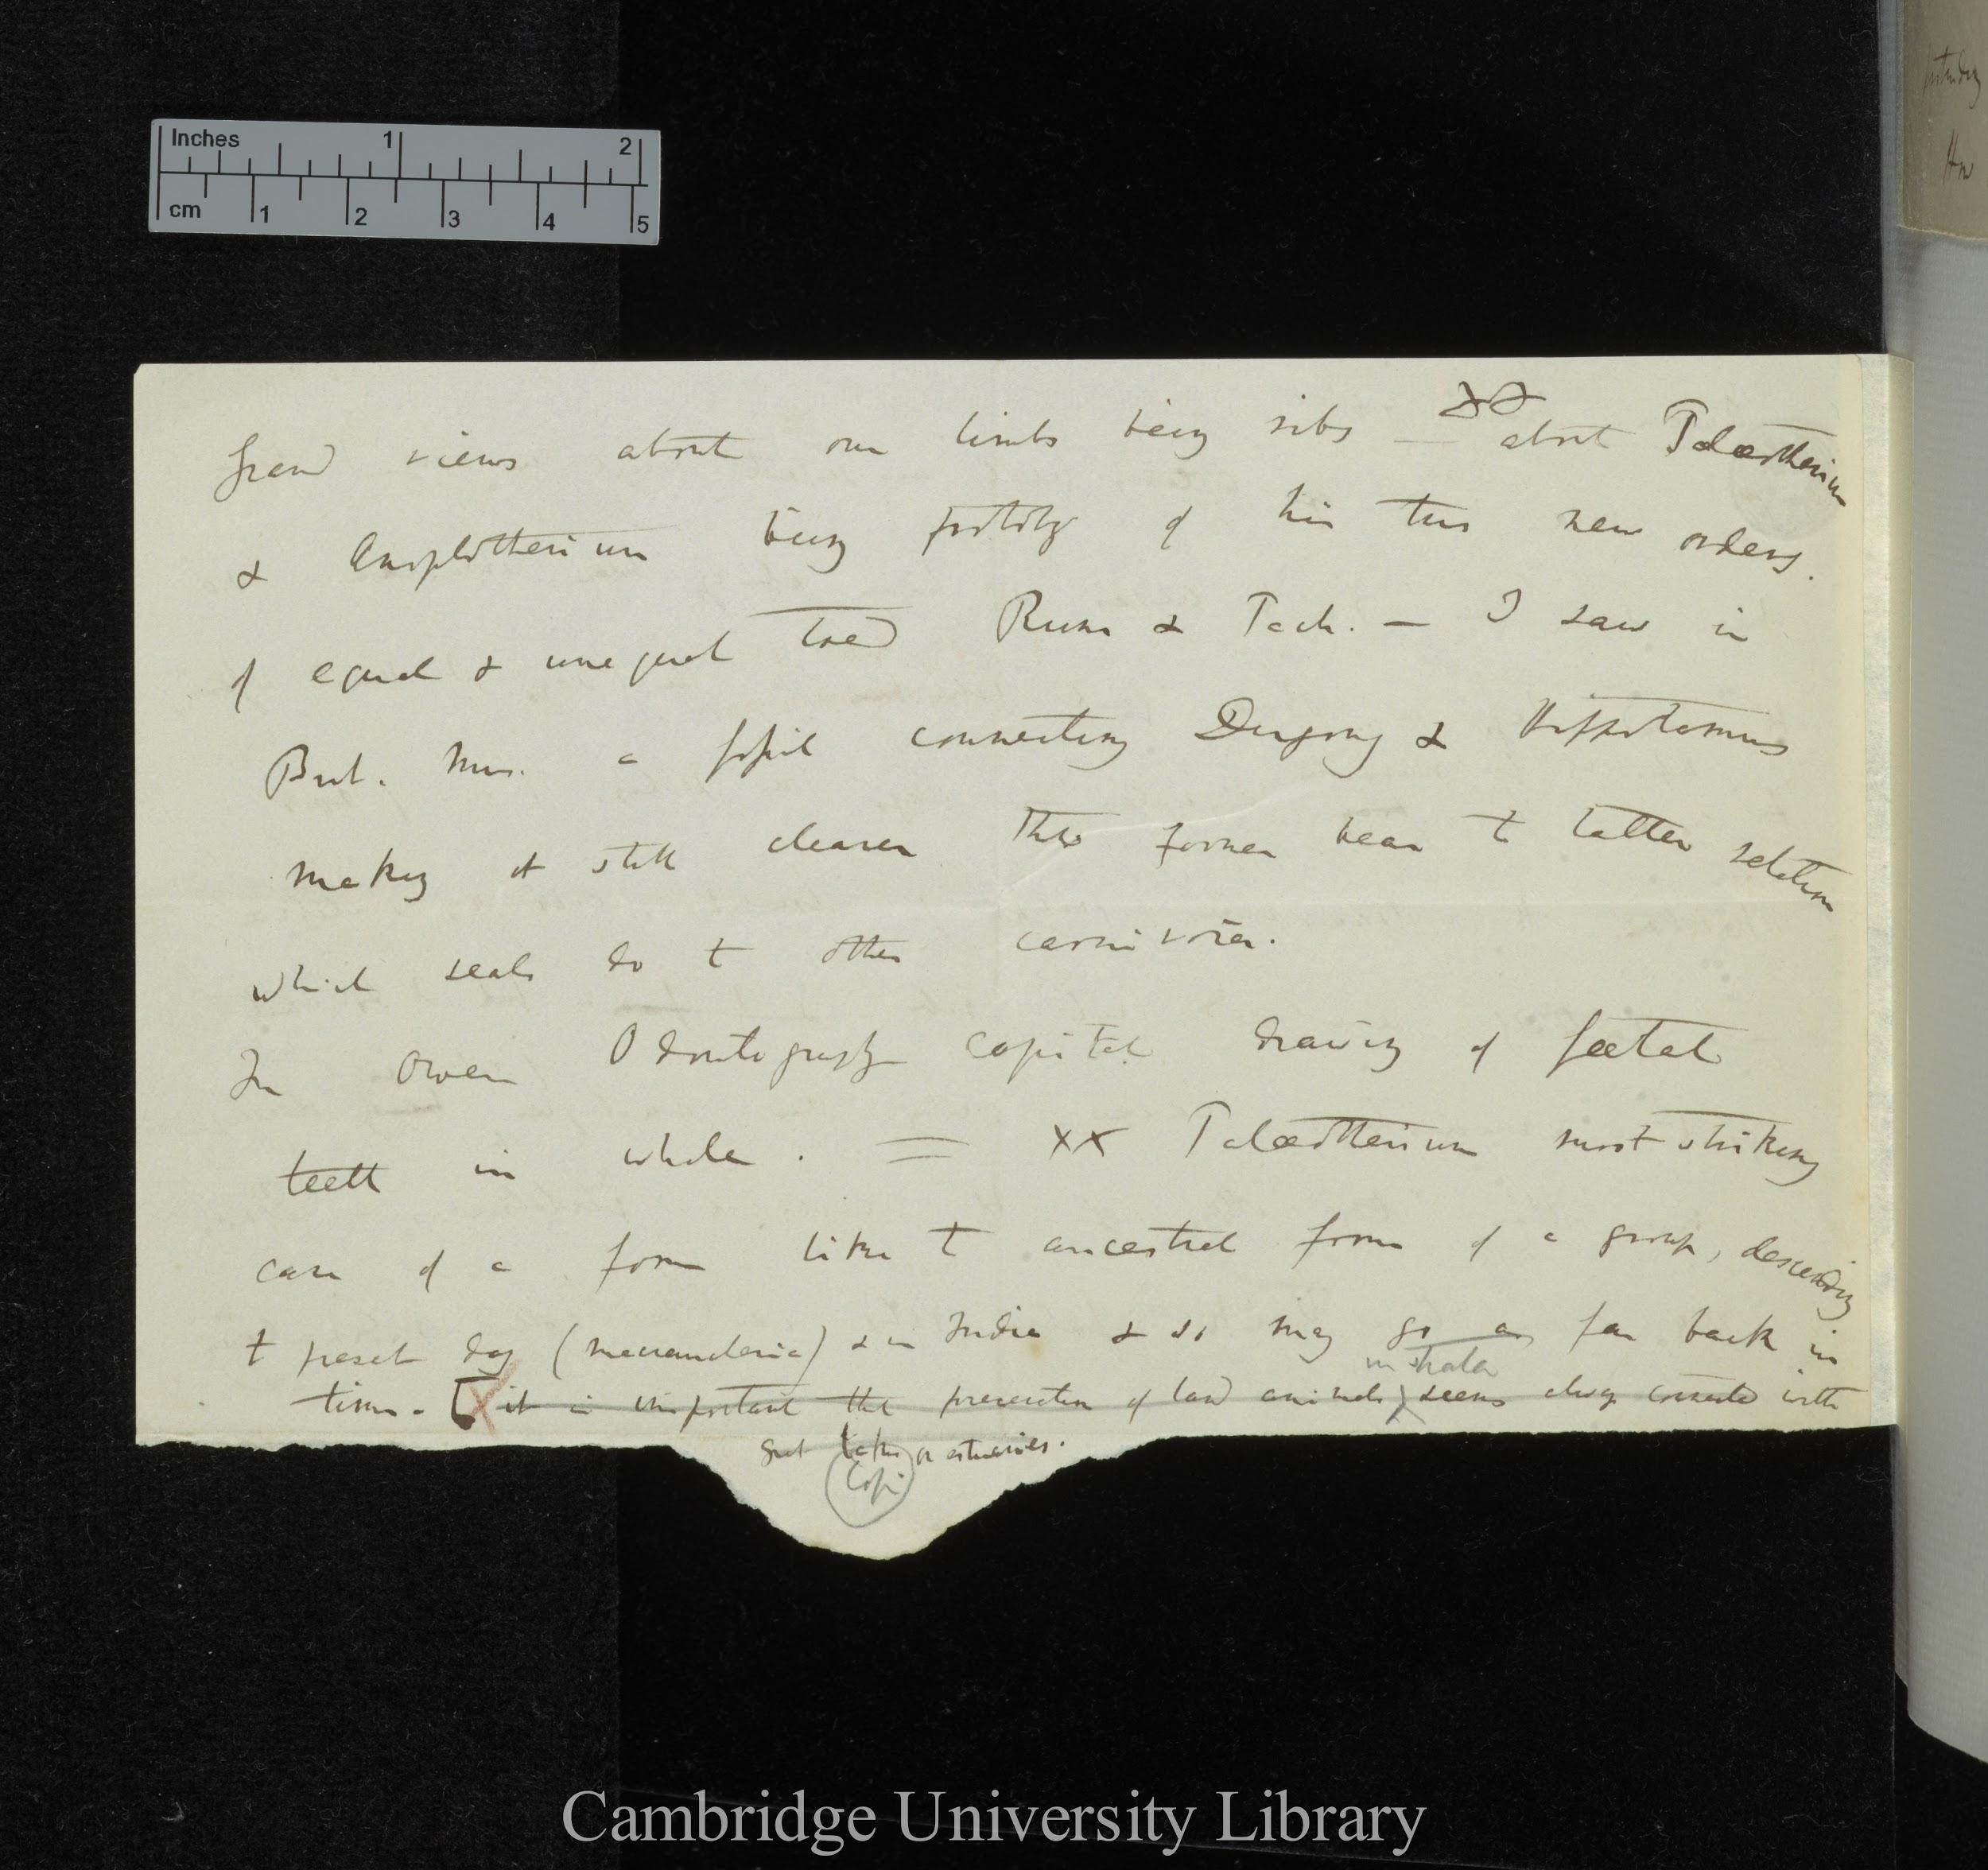 Inches 1 2
cm 1 2 3 4 5
grand views about our limbs being ribs — XX about Palæotherium
& Anoplotherium being prototype of his two new orders.
of equal & unequal toed Rum & Pach. — I saw in
Brit. Mus. a fossil connecting Dugong & Hippotamus
making it still clearer that former bear to latter relation
which seals do to other carnivora.
In Owen Odontography capital drawing of fœtal
teeth in whale. = XX Palæotherium most striking
case of a form like t ancestral form of a group, descending
t present day & in India & so may go as far back in
in strata
time. [X it is important that preservation of land animals, seems always connected with
great lakes or estuaries.
How
Cambridge University Library